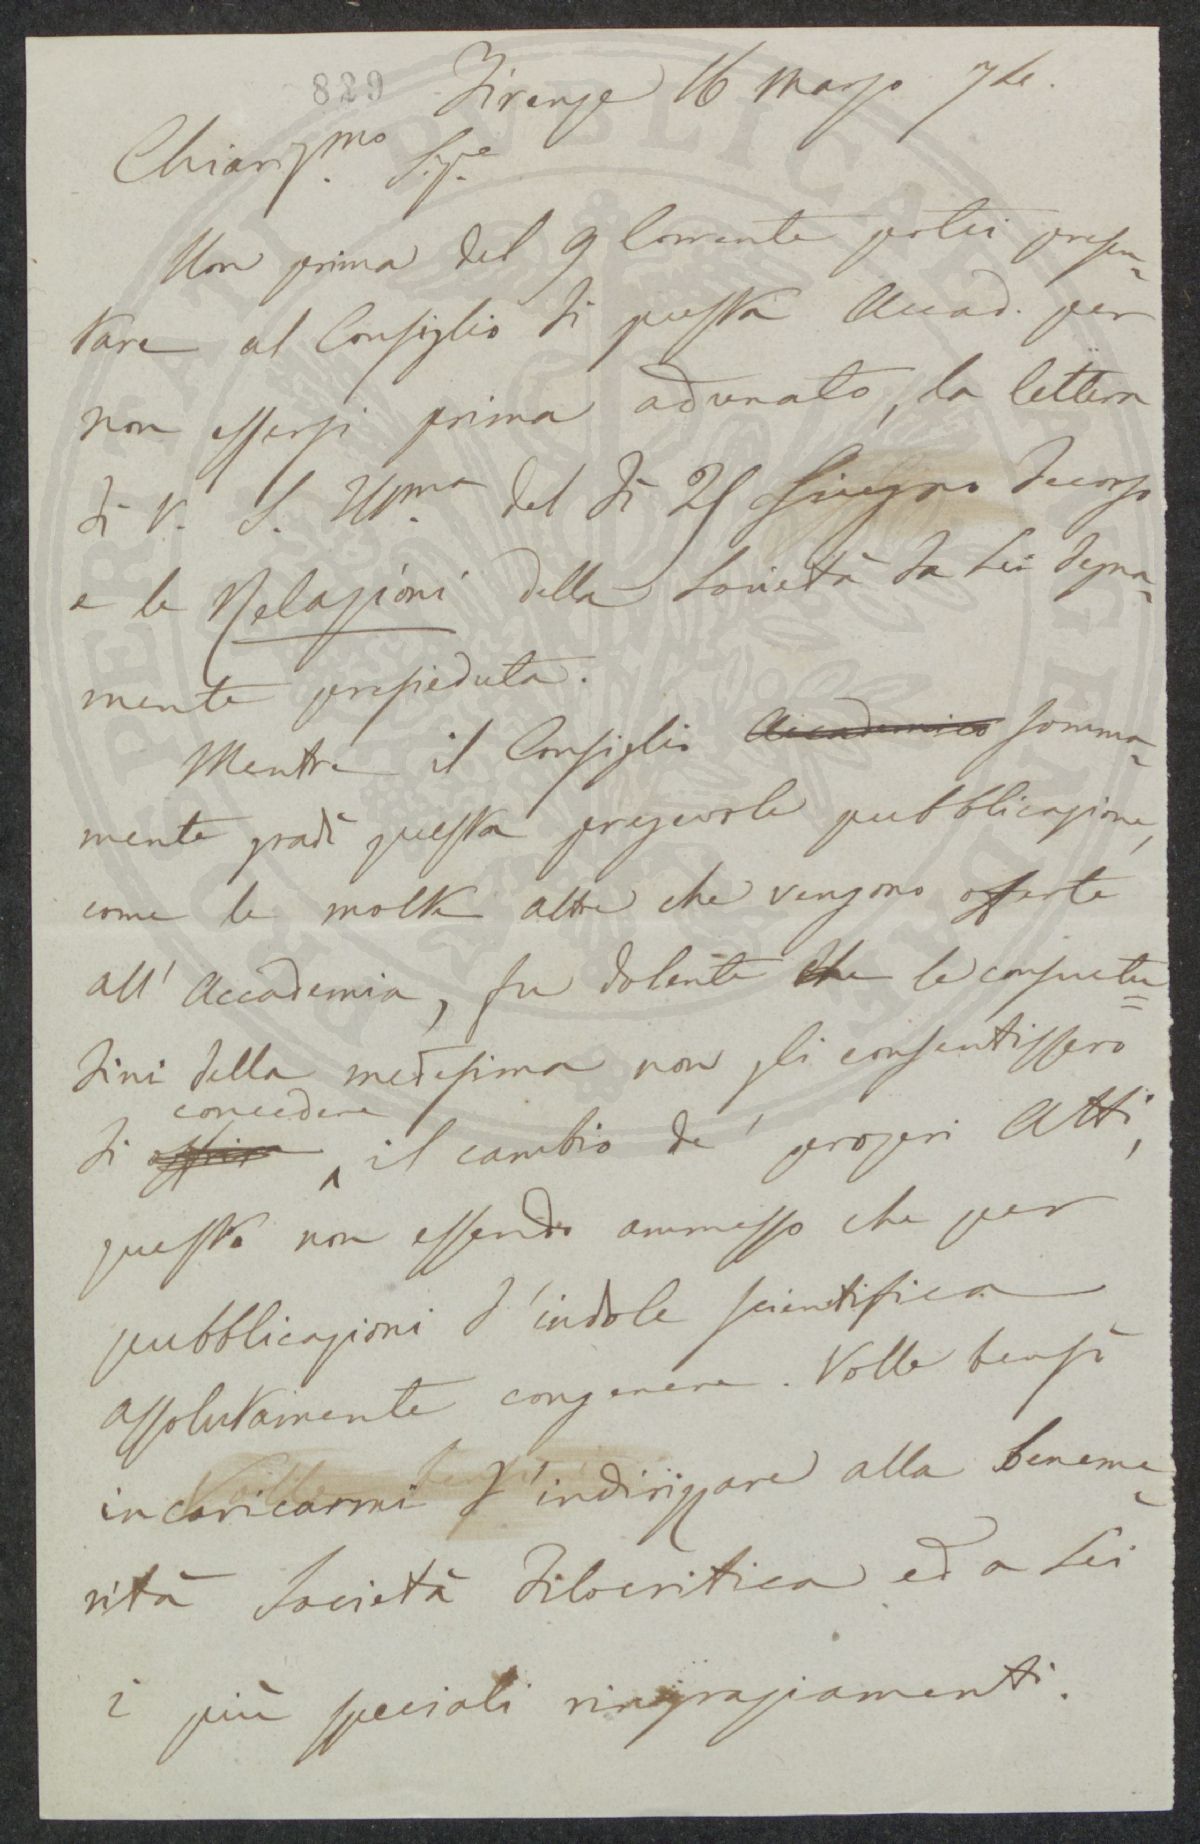 829
Firenze 16 marzo 74.
Chiariss.mo Sig.re
Non prima del 9 Corrente potei presen-
tare al Consiglio di questa Accad. per
non essersi prima adunato, la lettera
di V. S. Ill.ma del dì 25 Giugno decorso
e le Relazioni della Società da Lei degna-
mente presieduta.
Mentre il Consiglio Accademico somma-
mente gradì questa pregevole pubblicazione,
come le molte altre che vengono offerte
all' Accademia, fu dolente che le consuetu=
dini della medesima non gli consentissero
concedere
di offrire il cambio de' propri Atti,
questo non essendo ammesso che per
pubblicazioni d'indole scientifica
assolutamente congenere. Volle bensì
incaricarmi d'indirizzare alla beneme-
rita Società Filocritica ed a Lei
i più speciali ringraziamenti.